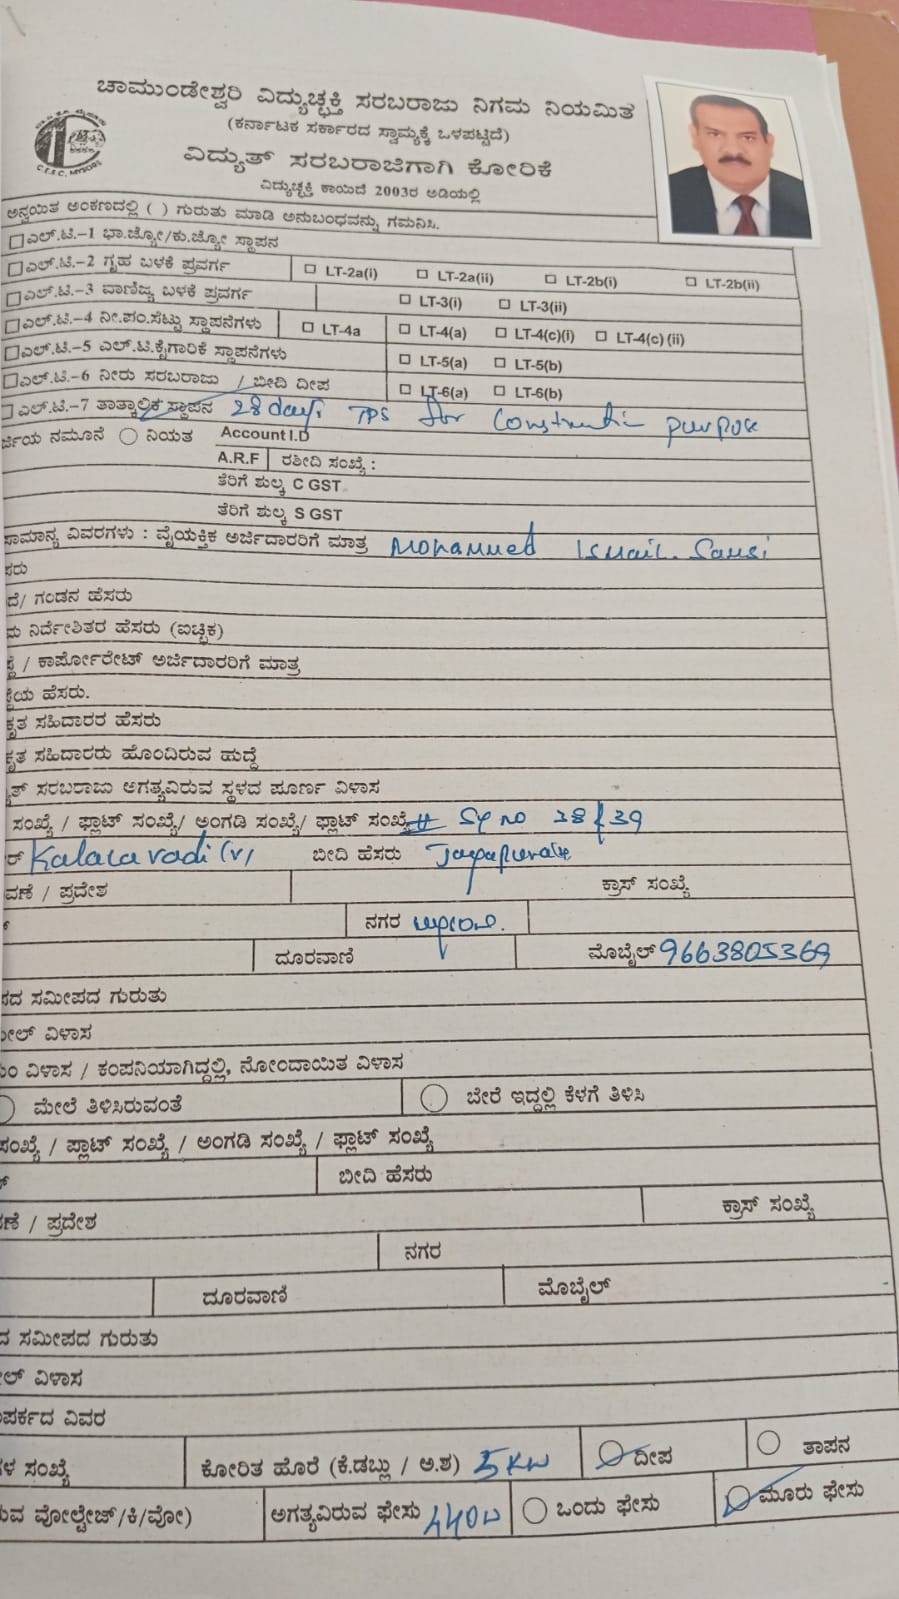 ಚಾಮುಂಡೇಶ್ವರಿ ವಿದ್ಯುಚ್ಛಕ್ತಿ ಸರಬರಾಜು ನಿಗಮ ನಿಯಮಿತ
(ಕರ್ನಾಟಕ ಸರ್ಕಾರದ ಸ್ವಾಮ್ಯಕ್ಕೆ ಒಳಪಟ್ಟಿದೆ)
C.E.S.C, MYSORE
ವಿದ್ಯುತ್ ಸರಬರಾಜಿಗಾಗಿ ಕೋರಿಕೆ
ವಿದ್ಯುಚ್ಛಕ್ತಿ ಕಾಯಿದೆ 2003ರ ಅಡಿಯಲ್ಲಿ
ಅನ್ವಯಿತ ಅಂಕಣದಲ್ಲಿ ( ) ಗುರುತು ಮಾಡಿ ಅನುಬಂಧವನ್ನು ಗಮನಿಸಿ.
ಎಲ್.ಟಿ.-1 ಭಾ.ಜ್ಯೋ/ಕು.ಜ್ಯೋ ಸ್ಥಾಪನ
ಎಲ್.ಟಿ.-2 ಗೃಹ ಬಳಕೆ ಪ್ರವರ್ಗ LT-2a(i) LT-2a(ii) LT-2b(i) LT-2b(ii)
ಎಲ್.ಟಿ.-3 ವಾಣಿಜ್ಯ ಬಳಕೆ ಪ್ರವರ್ಗ LT-3(i) LT-3(ii)
ಎಲ್.ಟಿ.-4 ನೀ.ಪಂ.ಸೆಟ್ಟು ಸ್ಥಾಪನೆಗಳು LT-4a LT-4(a) LT-4(c)(i) LT-4(c)(ii)
ಎಲ್.ಟಿ.-5 ಎಲ್.ಟಿ.ಕೈಗಾರಿಕೆ ಸ್ಥಾಪನೆಗಳು LT-5(a) LT-5(b)
ಎಲ್.ಟಿ.-6 ನೀರು ಸರಬರಾಜು / ಬೀದಿ ದೀಪ LT-6(a) LT-6(b)
ಎಲ್.ಟಿ.-7 ತಾತ್ಕಾಲಿಕ ಸ್ಥಾಪನ 28 days TPS for Construction purpose
ರ್ಜಿಯ ನಮೂನೆ ನಿಯತ Account I.D
A.R.F ರಶೀದಿ ಸಂಖ್ಯೆ :
ತೆರಿಗೆ ಶುಲ್ಕ C GST
ತೆರಿಗೆ ಶುಲ್ಕ S GST
ಸಾಮಾನ್ಯ ವಿವರಗಳು : ವೈಯಕ್ತಿಕ ಅರ್ಜಿದಾರರಿಗೆ ಮಾತ್ರ Mohammed Ismail
ಸರು
ದೆ/ ಗಂಡನ ಹೆಸರು
ಮ ನಿರ್ದೇಶಿತರ ಹೆಸರು (ಐಚ್ಛಿಕ)
/ ಕಾರ್ಪೋರೇಟ್ ಅರ್ಜಿದಾರರಿಗೆ ಮಾತ್ರ
ಯ ಹೆಸರು.
ಕೃತ ಸಹಿದಾರರ ಹೆಸರು
ಕೃತ ಸಹಿದಾರರು ಹೊಂದಿರುವ ಹುದ್ದೆ
ತ್ ಸರಬರಾಜು ಅಗತ್ಯವಿರುವ ಸ್ಥಳದ ಪೂರ್ಣ ವಿಳಾಸ
ಸಂಖ್ಯೆ / ಫ್ಲಾಟ್ ಸಂಖ್ಯೆ/ ಅಂಗಡಿ ಸಂಖ್ಯೆ/ ಫ್ಲಾಟ್ ಸಂಖ್ಯೆ # Sy no 38 & 39
ರ್ Kalalavadi (v) ಬೀದಿ ಹೆಸರು
ವಣೆ / ಪ್ರದೇಶ ಕ್ರಾಸ್ ಸಂಖ್ಯೆ
ನಗರ
ದೂರವಾಣಿ ಮೊಬೈಲ್ 9663805369
ಪದ ಸಮೀಪದ ಗುರುತು
ಮೇಲ್ ವಿಳಾಸ
ಂ ವಿಳಾಸ / ಕಂಪನಿಯಾಗಿದ್ದಲ್ಲಿ, ನೋಂದಾಯಿತ ವಿಳಾಸ
ಮೇಲೆ ತಿಳಿಸಿರುವಂತೆ ಬೇರೆ ಇದ್ದಲ್ಲಿ ಕೆಳಗೆ ತಿಳಿಸಿ
ಸಂಖ್ಯೆ / ಪ್ಲಾಟ್ ಸಂಖ್ಯೆ / ಅಂಗಡಿ ಸಂಖ್ಯೆ / ಫ್ಲಾಟ್ ಸಂಖ್ಯೆ
ಬೀದಿ ಹೆಸರು
ವಣೆ / ಪ್ರದೇಶ ಕ್ರಾಸ್ ಸಂಖ್ಯೆ
ನಗರ
ದೂರವಾಣಿ ಮೊಬೈಲ್
ದ ಸಮೀಪದ ಗುರುತು
ಲ್ ವಿಳಾಸ
ಂಪರ್ಕದ ವಿವರ
ಳ ಸಂಖ್ಯೆ ಕೋರಿತ ಹೊರೆ (ಕೆ.ಡಬ್ಲು / ಅ.ಶ) 5 KW ದೀಪ ತಾಪನ
ರುವ ವೋಲ್ಟೇಜ್/ಕಿ/ವೋ) ಅಗತ್ಯವಿರುವ ಫೇಸು 440v ಒಂದು ಫೇಸು ಮೂರು ಫೇಸು